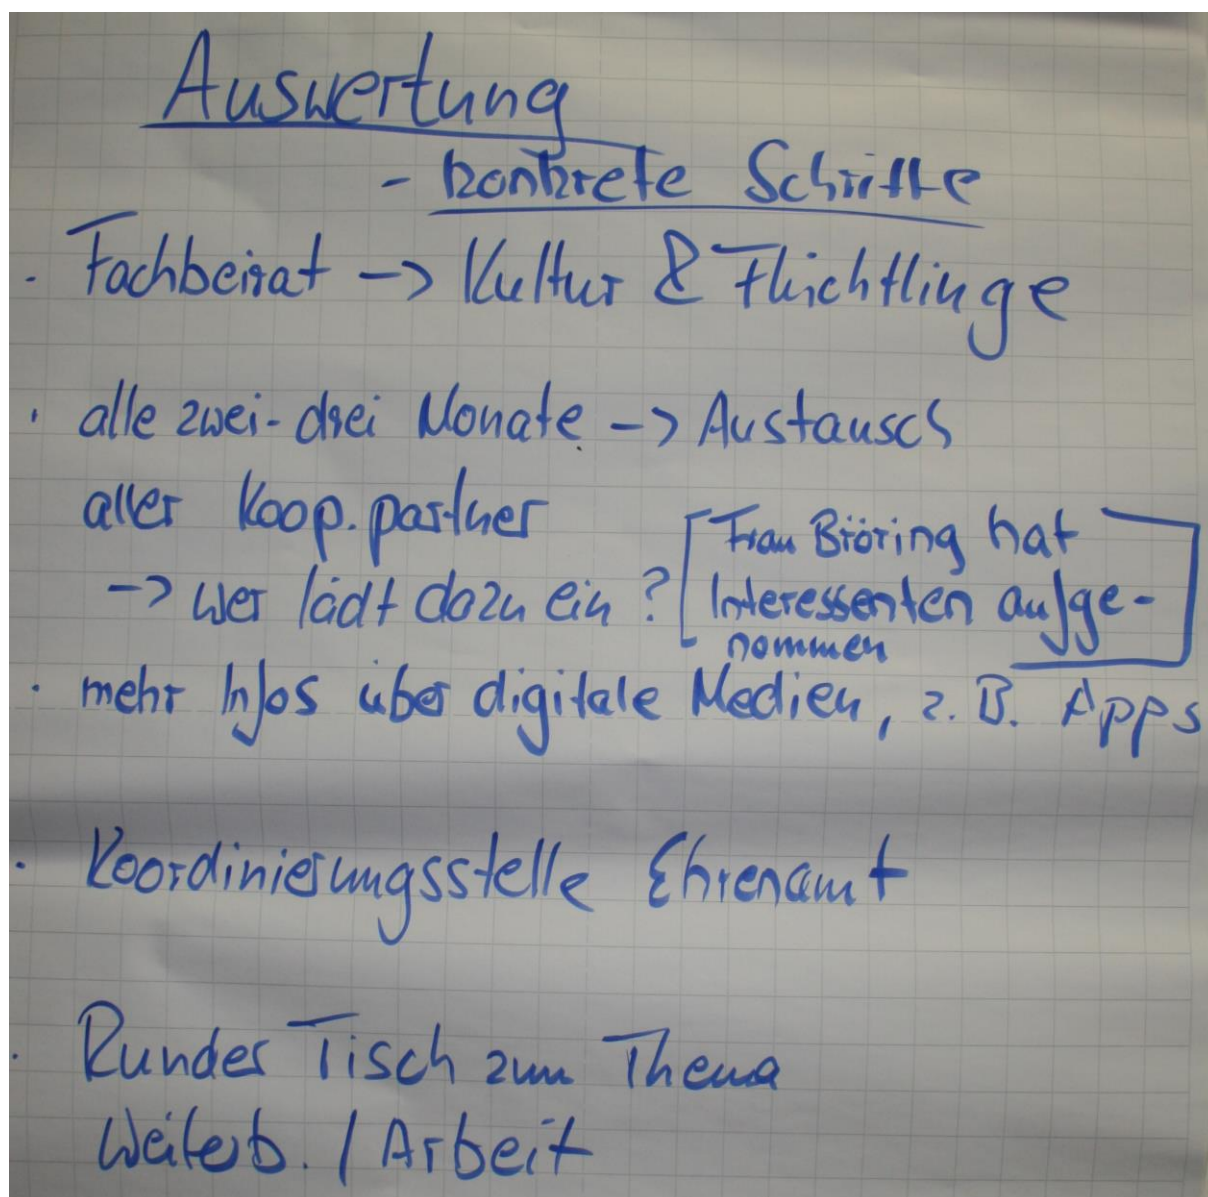 Auswertung
- konkrete Schritte
· Fachbeirat -> Kultur & Flüchtlinge
· alle zwei-drei Monate -> Austausch
aller Koop.partner
-> wer lädt dazu ein?
[Frau Bröring hat
Interessenten aufge-
nommen]
· mehr Infos über digitale Medien, z.B. Apps
· Koordinierungsstelle Ehrenamt
· Runder Tisch zum Thema
Weiterb. / Arbeit